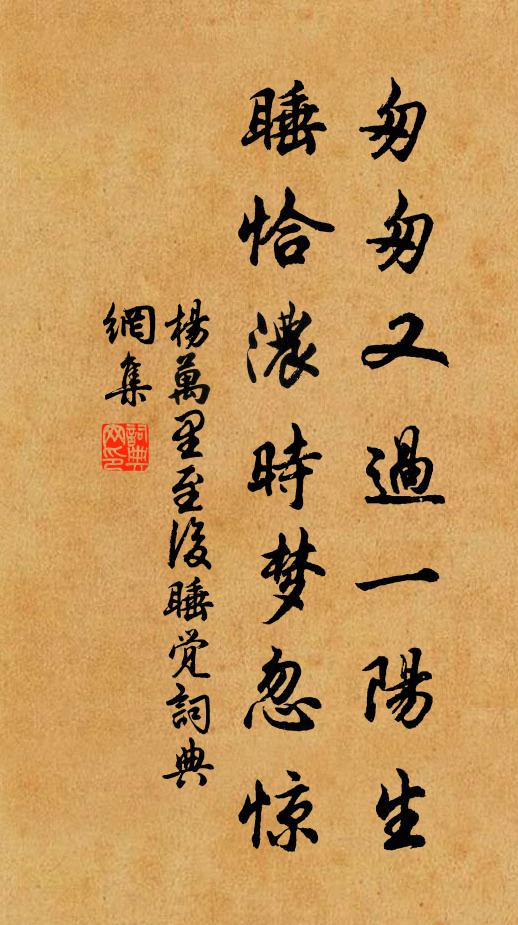 匆匆又過一陽生
睡恰濃時梦忽惊
楊萬里至後睡觉詞典
網集
詞典
网印